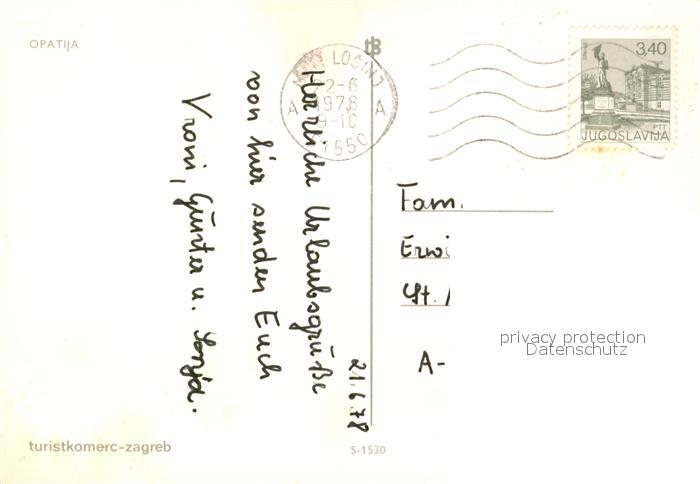 OPATIJA
LOŠINJ
2-6
1978
A A
9-10
1550
3,40
PTT
JUGOSLAVIJA
Herrliche Urlaubsgrüße
von hier senden Euch
Vroni, Günter u. Sonja.
21.6.78
Fam.
Erwi
St.
A-
privacy protection
Datenschutz
turistkomerc-zagreb
S-1530